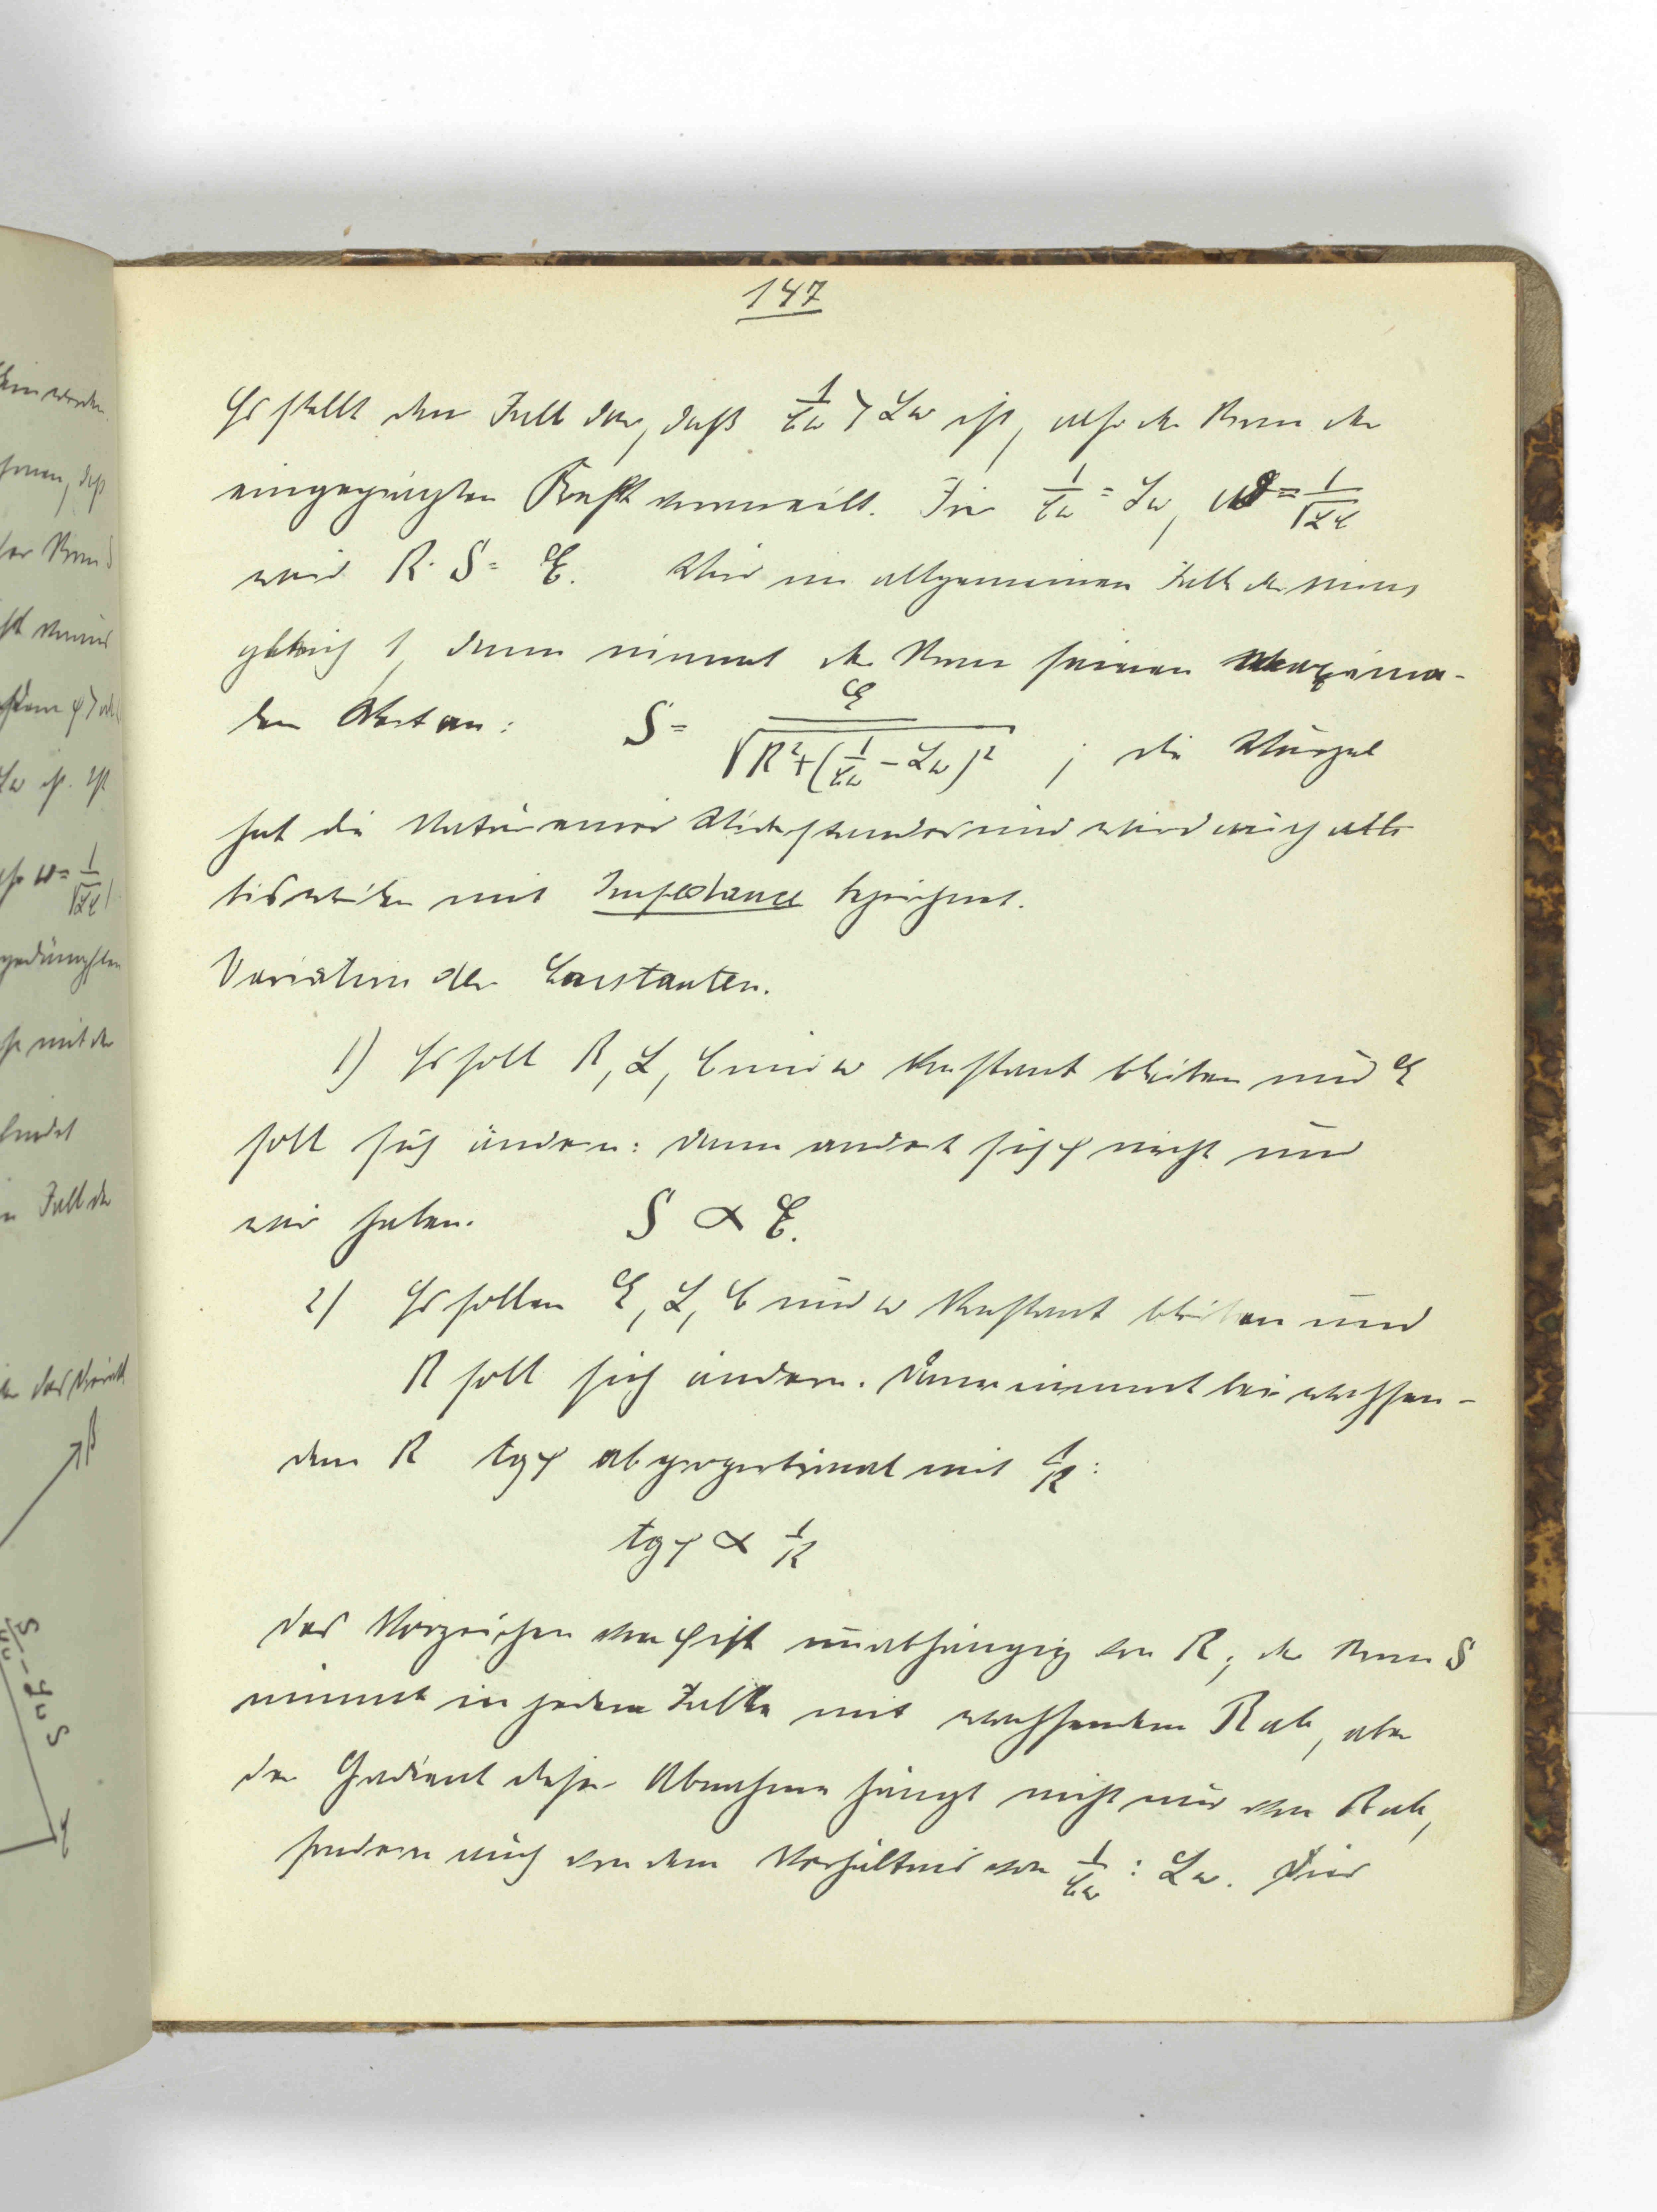 147
Es stellt den Fall dar, daß 1/Cω > Lω ist, also der Strom der
eingeprägten Kraft voraneilt. Für 1/Cω = Lω, ω = 1/√LC
wird R · S = E. Wird im allgemeinen Fall der sinus
gleich 1, dann nimmt der Strom seinen maxima-
len Wert an: S = E / √(R² + (1/Cω − Lω)²) ; die Wurzel
hat die Natur eines Widerstandes und wird auch
bisweilen mit Impedance bezeichnet.
Variation der Constanten.
1) Es soll R, L, C und ω konstant bleiben und E
soll sich ändern: dann ändert sich φ nicht und
wir haben. S ∝ E.
2) Es sollen E, L, C und ω konstant bleiben und
R soll sich ändern. Dann nimmt bei wachsen-
dem R tg φ ab proportional mit 1/R:
tg φ ∝ 1/R
Das Vorzeichen von φ ist unabhängig von R; der Strom S
nimmt in jedem Falle mit wachsendem R ab, aber
der Gradient dieser Abnahme hängt nicht nur von R ab,
sondern auch von dem Verhältnis von 1/Cω : Lω.